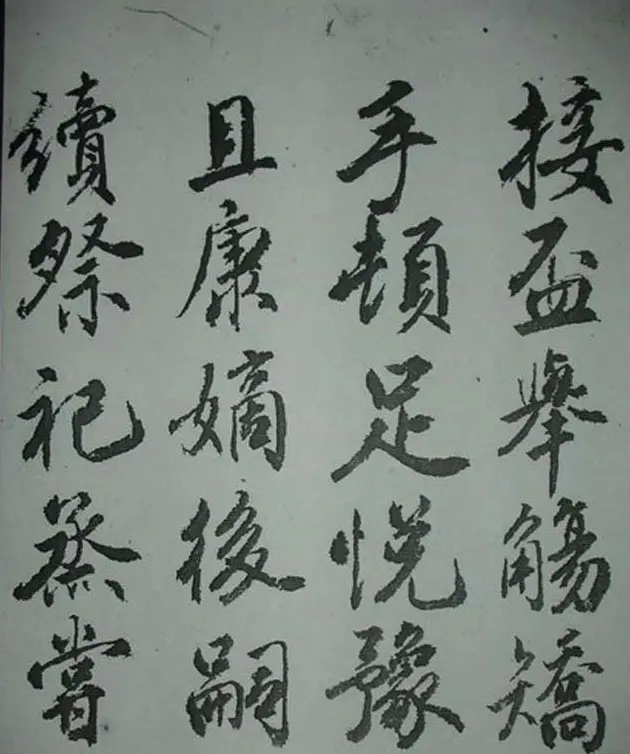 接盃舉觴矯
手頓足悅豫
且康嫡後嗣
續祭祀蒸嘗